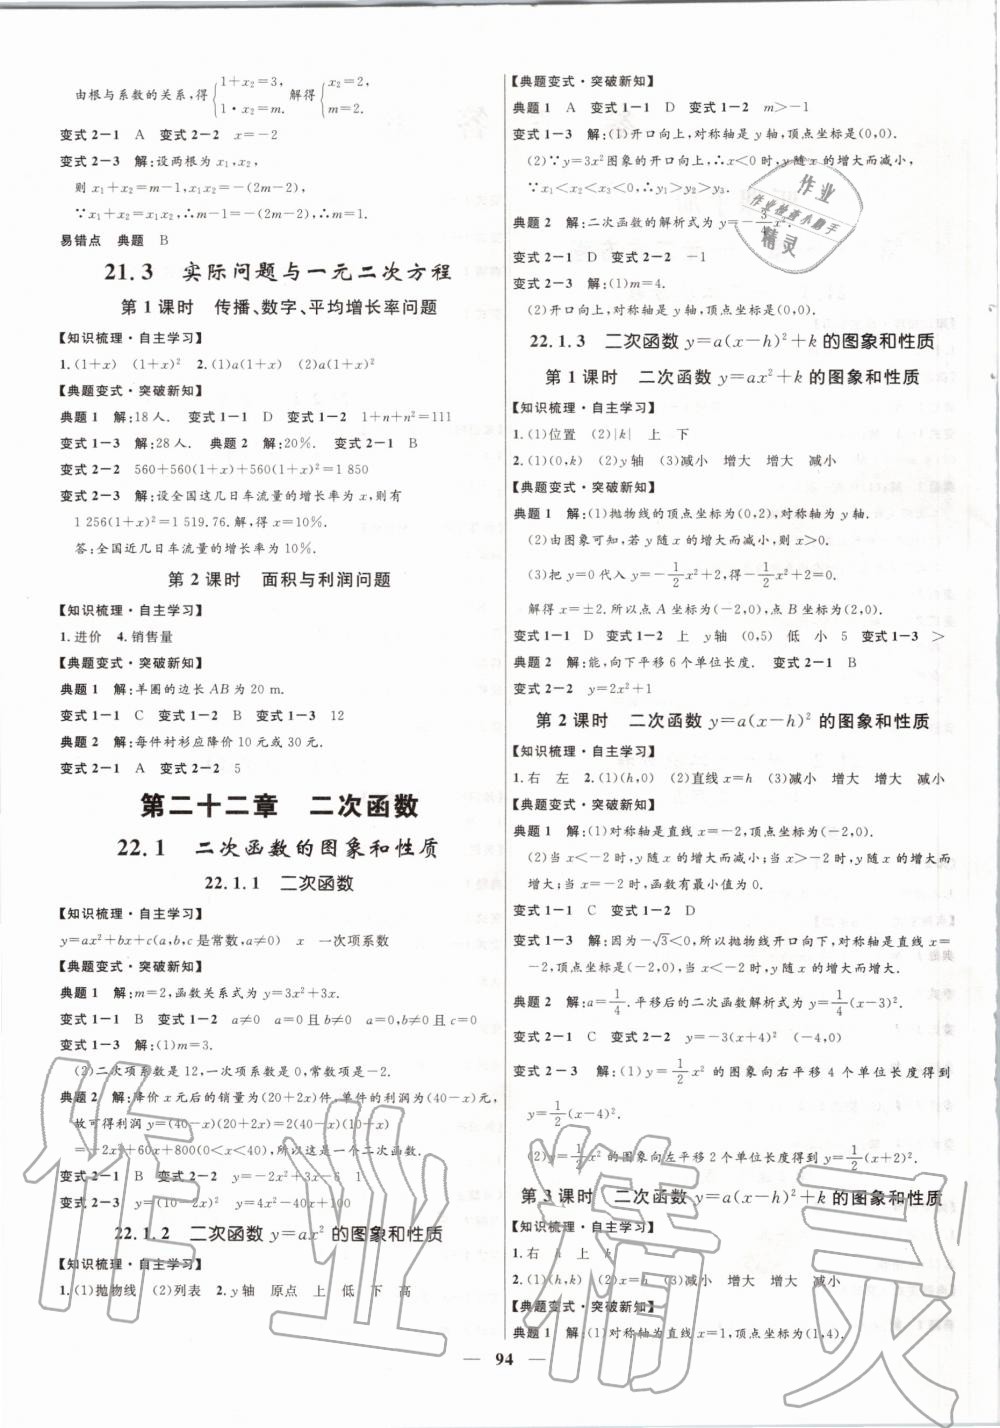 由根与系数的关系,得{1+x₂=3, 1·x₂=m. 解得{x₂=2, m=2.
变式2-1 A 变式2-2 x=-2
变式2-3 解:设两根为x₁,x₂,
则x₁+x₂=m-1,x₁x₂=-(2m-2).
∵x₁+x₂=x₁x₂,∴m-1=-(2m-2).∴m=1.
易错点 典题 B
21.3 实际问题与一元二次方程
第1课时 传播、数字、平均增长率问题
【知识梳理·自主学习】
1.(1+x) (1+x)² 2.(1)a(1+x) (2)a(1+x)²
【典题变式·突破新知】
典题1 解:18人. 变式1-1 D 变式1-2 1+n+n²=111
变式1-3 解:28人. 典题2 解:20%. 变式2-1 B
变式2-2 560+560(1+x)+560(1+x)²=1 850
变式2-3 解:设全国这几日车流量的增长率为x,则有
1 256(1+x)²=1 519.76. 解,得x=10%.
答:全国近几日车流量的增长率为10%.
第2课时 面积与利润问题
【知识梳理·自主学习】
1.进价 4.销售量
【典题变式·突破新知】
典题1 解:羊圈的边长AB为20 m.
变式1-1 C 变式1-2 B 变式1-3 12
典题2 解:每件衬衫应降价10元或30元.
变式2-1 A 变式2-2 5
第二十二章 二次函数
22.1 二次函数的图象和性质
22.1.1 二次函数
【知识梳理·自主学习】
y=ax²+bx+c(a,b,c是常数,a≠0) x 一次项系数
【典题变式·突破新知】
典题1 解:m=2,函数关系式为y=3x²+3x.
变式1-1 B 变式1-2 a≠0 a=0且b≠0 a≠0,b≠0且c=0
变式1-3 解:(1)m=3.
(2)二次项系数是12,一次项系数是0,常数项是-2.
典题2 解:降价x元后的销量为(20+2x)件,单件的利润为(40-x)元,
故可得利润y=(40-x)(20+2x)=2(40-x)(10+x)
=-2x²+60x+800(0<x<40).所以这是一个二次函数.
变式2-1 B 变式2-2 y=-2x²+3x-6 1
变式2-3 y=(10-2x)² y=4x²-40x+100
22.1.2 二次函数y=ax²的图象和性质
【知识梳理·自主学习】
1.(1)抛物线 (2)列表 2.y轴 原点 上 低 下 高
【典题变式·突破新知】
典题1 A 变式1-1 D 变式1-2 m>-1
变式1-3 解:(1)开口向上,对称轴是y轴,顶点坐标为(0,0).
(2)∵y=3x²图象的开口向上,∴x<0时,y随x的增大而减小,
∵x₁<x₂<x₃<0,∴y₁>y₂>y₃.
典题2 解:二次函数的解析式为y=-3/4x².
变式2-1 D 变式2-2 -1
变式2-3 解:(1)m=4.
(2)开口向上,对称轴是y轴,顶点坐标为(0,0).
22.1.3 二次函数y=a(x-h)²+k的图象和性质
第1课时 二次函数y=ax²+k的图象和性质
【知识梳理·自主学习】
1.(1)位置 (2)|k| 上 下
2.(1)(0,k) (2)y轴 (3)减小 增大 增大 减小
【典题变式·突破新知】
典题1 解:(1)抛物线的顶点坐标为(0,2),对称轴为y轴.
(2)由图象可知,若y随x的增大而减小,则x>0.
(3)把y=0代入y=-1/2x²+2,得-1/2x²+2=0.
解得x=±2.所以点A坐标为(-2,0),点B坐标为(2,0).
变式1-1 D 变式1-2 上 y轴 (0,5) 低 小 5 变式1-3 >
典题2 解:能,向下平移6个单位长度. 变式2-1 B
变式2-2 y=2x²+1
第2课时 二次函数y=a(x-h)²的图象和性质
【知识梳理·自主学习】
1.右 左 2.(1)(h,0) (2)直线x=h (3)减小 增大 增大 减小
【典题变式·突破新知】
典题1 解:(1)对称轴是直线x=-2,顶点坐标为(-2,0).
(2)当x<-2时,y随x的增大而减小;当x>-2时,y随x的增大而
增大;当x=-2时,函数有最小值为0.
变式1-1 C 变式1-2 D
变式1-3 解:因为-√3<0,所以抛物线开口向下,对称轴是直线x=
-2,顶点坐标为(-2,0),当x<-2时,y随x的增大而增大.
典题2 解:a=1/4.平移后的二次函数解析式为y=1/4(x-3)².
变式2-1 C 变式2-2 y=-3(x+4)² (-4,0)
变式2-3 解:(1)y=1/2x²的图象向右平移4个单位长度得到
y=1/2(x-4)².
(2)y=-1/2x²的图象向左平移2个单位长度得到y=-1/2(x+2)².
第3课时 二次函数y=a(x-h)²+k的图象和性质
【知识梳理·自主学习】
1.右 h 上 k
2.(1)(h,k) (2)x=h (3)减小 增大 增大 减小
【典题变式·突破新知】
典题1 解:(1)对称轴为直线x=1,顶点坐标为(1,4).
94
作业
作业检查小助手
精灵
作业精灵